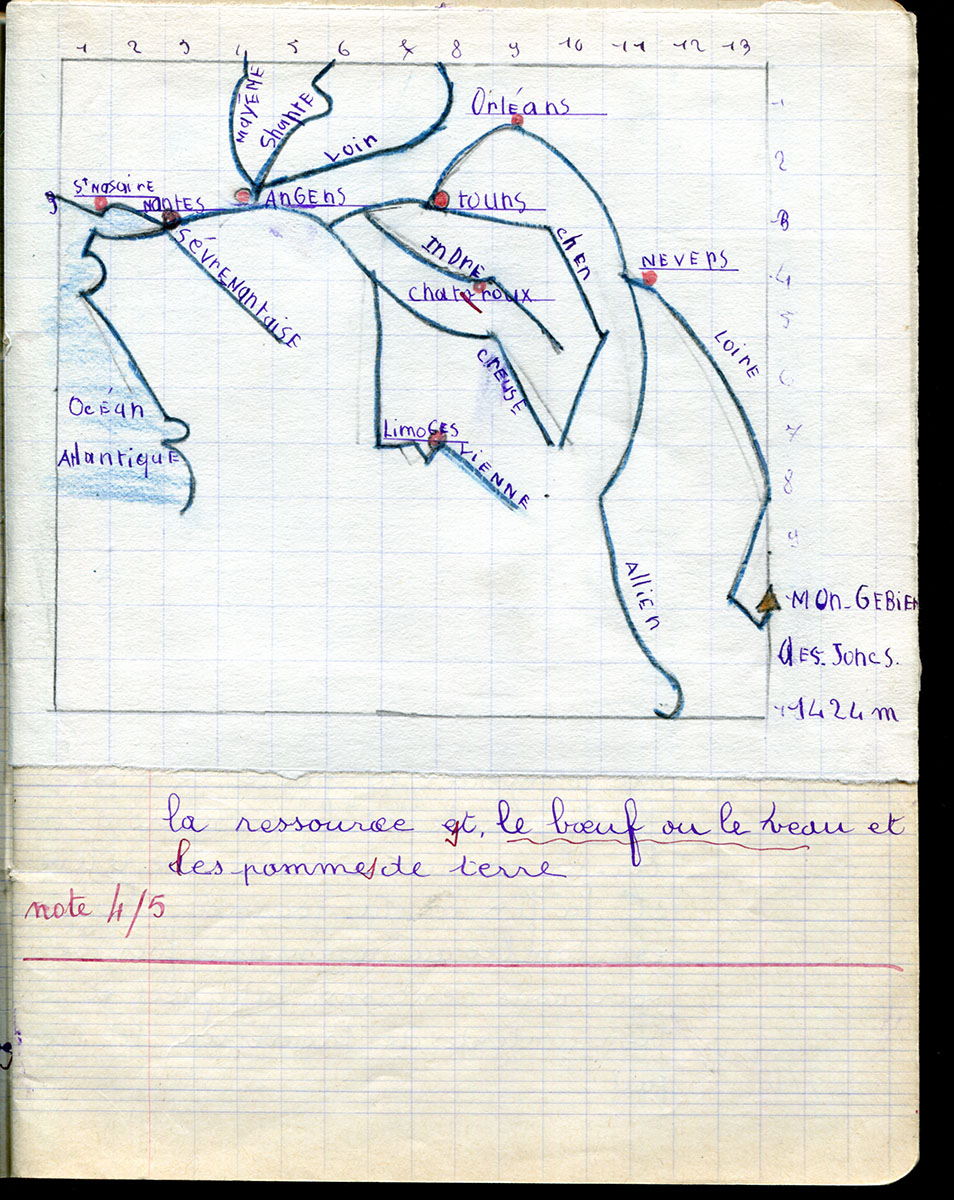 1 2 3 4 5 6 7 8 9 10 11 12 13
MAYENE
Shante
Loir
Orléans
1
2
3
4
5
6
7
8
9
St Nasaire
NANTES
ANGENS
touns
SÉVRE NANTAISE
INDRE
chen
NEVERS
chateroux
LOIRE
CREUSE
Océan
Atlantique
LimoGES
VIENNE
Allien
MON-GEBIEN
des. Joncs.
1424 m
la ressource et, le bœuf ou le veau et
les pommes de terre
note 4/5